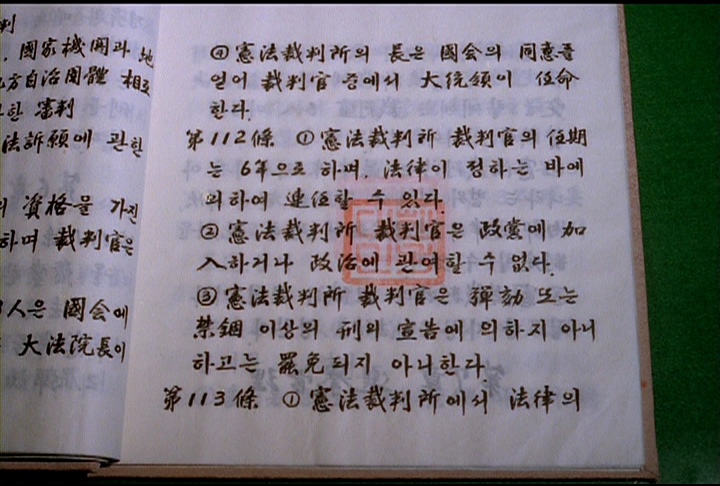 判
, 國家機関과 地
方自治団體 相互
한 審判
法訴願에 관한
의 資格을 가진
하며 裁判官은
3人은 國会에
大法院長이
④憲法裁判所의 長은 國会의 同意를
얻어 裁判官 중에서 大統領이 任命
한다.
第112條 ①憲法裁判所 裁判官의 任期
는 6年으로 하며, 法律이 정하는 바에
의하여 連任할 수 있다.
②憲法裁判所 裁判官은 政黨에 加
入하거나 政治에 관여할 수 없다.
③憲法裁判所 裁判官은 彈劾 또는
禁錮 이상의 刑의 宣告에 의하지 아니
하고는 罷免되지 아니한다
第113條 ①憲法裁判所에서 法律의